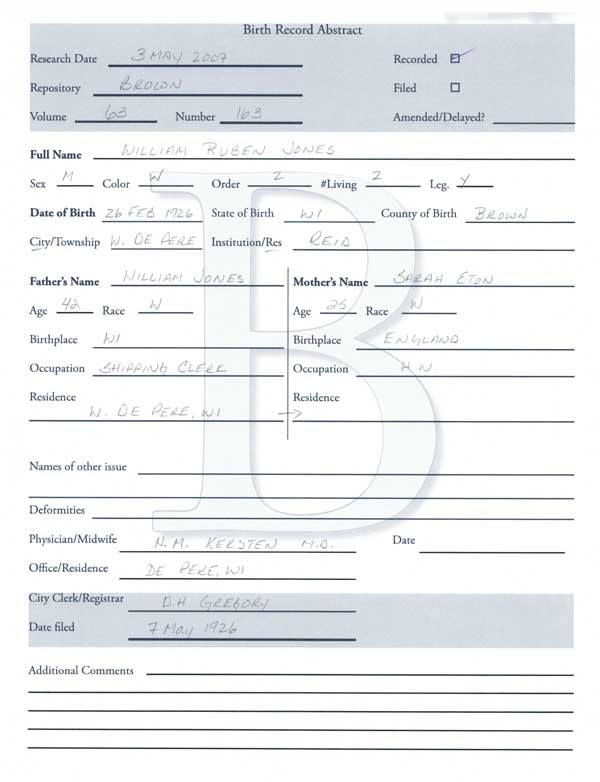 Birth Record Abstract
Research Date 3 MAY 2007 Recorded ☑
Repository BROWN Filed ☐
Volume 63 Number 163 Amended/Delayed?
Full Name WILLIAM RUBEN JONES
Sex M Color W Order 2 #Living 2 Leg. Y
Date of Birth 26 FEB 1926 State of Birth WI County of Birth BROWN
City/Township W. DE PERE Institution/Res REID
Father's Name WILLIAM JONES Mother's Name SARAH ETON
Age 42 Race W Age 25 Race W
Birthplace WI Birthplace ENGLAND
Occupation SHIPPING CLERK Occupation HW
Residence Residence
W. DE PERE, WI →
Names of other issue
Deformities
Physician/Midwife N.M. KERSTEN M.D. Date
Office/Residence DE PERE, WI
City Clerk/Registrar D.H GREGORY
Date filed 7 May 1926
Additional Comments